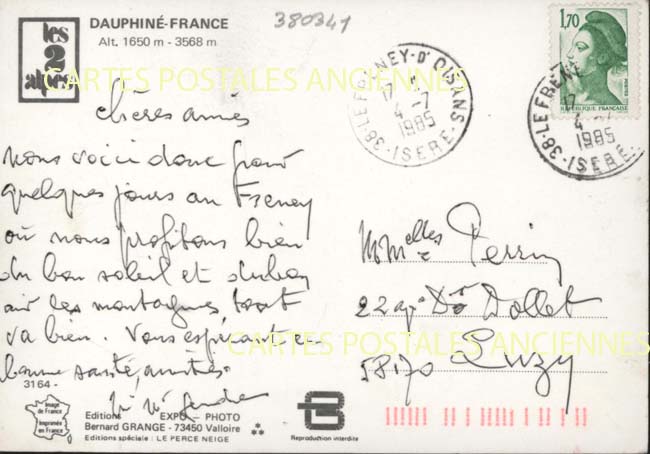 les
2
alpes
DAUPHINÉ-FRANCE
Alt. 1650 m - 3568 m
380341
38-LE FRENEY-D'OISANS
17
4-7
1985
ISERE
1,70
REPUBLIQUE FRANCAISE
38-LE FRENEY
17
4
1985
ISERE
CARTES POSTALES ANCIENNES
Chères amies
nous voici donc pour
quelques jours au Freney
où nous profitons bien
du bon soleil et du bon
air des montagnes, tout
va bien. Vous espérant en
bonne santé, amitiés
Mmelles Perrin
22 Dr Dollet
58170 Luzy
CARTES POSTALES ANCIENNES
3164 -
Image
de France
Imprimée
en France
Editions EXPO - PHOTO
Bernard GRANGE - 73450 Valloire
Editions spéciale : LE PERCE NEIGE
Reproduction interdite